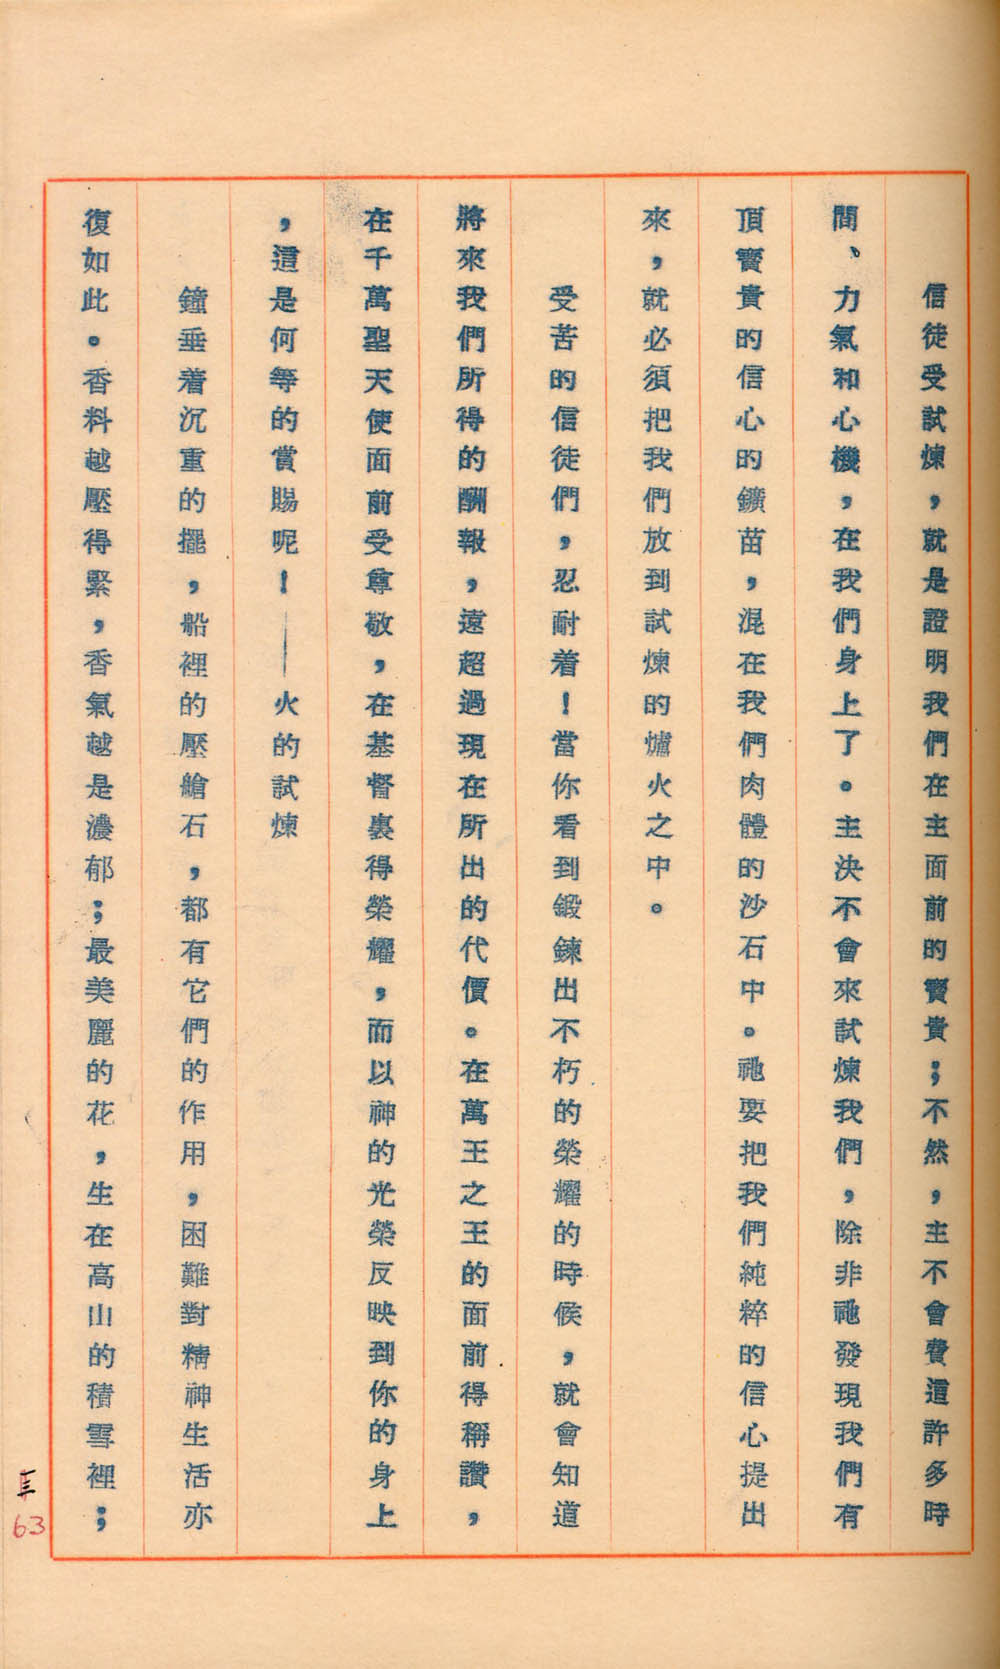 信徒受試煉，就是證明我們在主面前的寶貴；不然，主不會費這許多時
間、力氣和心機，在我們身上了。主決不會來試煉我們，除非祂發現我們有
頂寶貴的信心的鑛苗，混在我們肉體的沙石中。祂要把我們純粹的信心提出
來，就必須把我們放到試煉的爐火之中。
受苦的信徒們，忍耐着！當你看到鍛鍊出不朽的榮耀的時候，就會知道
將來我們所得的酬報，遠超過現在所出的代價。在萬王之王的面前得稱讚，
在千萬聖天使面前受尊敬，在基督裏得榮耀，而以神的光榮反映到你的身上
，這是何等的賞賜呢！——火的試煉
鐘垂着沉重的擺，船裡的壓艙石，都有它們的作用，困難對精神生活亦
復如此。香料越壓得緊，香氣越是濃郁；最美麗的花，生在高山的積雪裡；
63